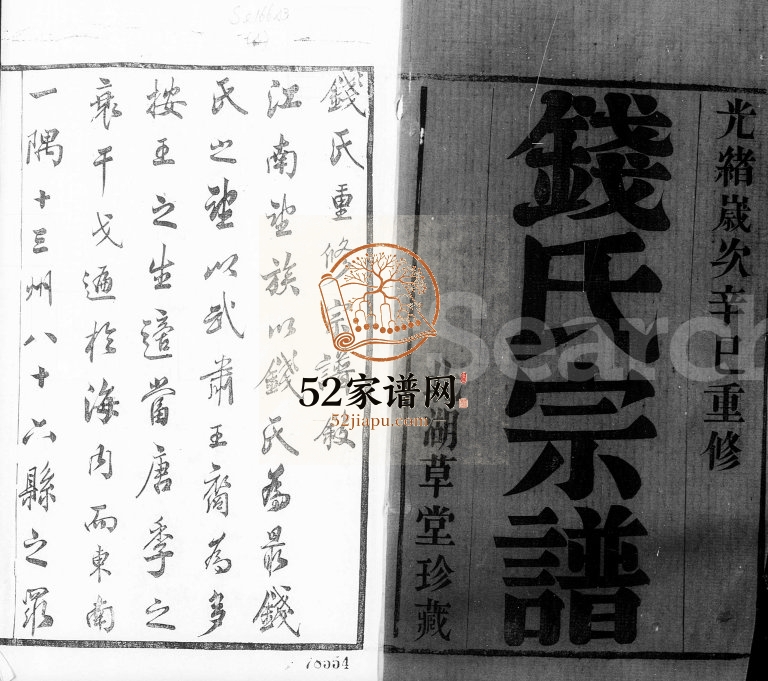 光緒歲次辛巳重修
錢氏宗譜
湖草堂珍藏
錢氏重修宗譜敘
江南望族以錢氏為最錢
氏之望以武肅王裔為多
按王之生適當唐季之
衰干戈遍於海內而東南
一隅十三州八十六縣之眾
52家谱网
52jiapu.com
Search
70554